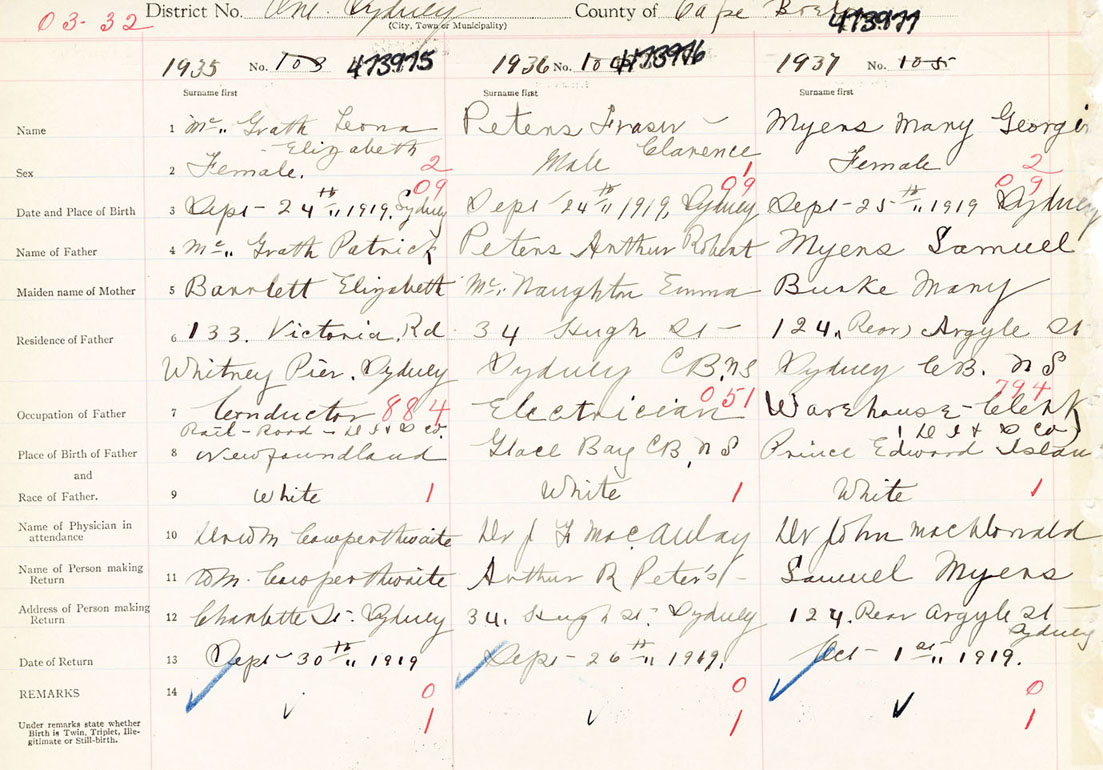 03-32 District No. One. Sydney County of Cape Breton
(City, Town or Municipality)
1935 No. 103 473975 1936 No. 473976 1937 No. 105 473977
Surname first Surname first Surname first
Name 1 Mc„ Grath Leona Peters Fraser — Myers Mary Georgie
Elizabeth Clarence
Sex 2 Female. 2 Male 1 Female 2
09 09 09
Date and Place of Birth 3 Sept - 24th„ 1919, Sydney Sept 24th„ 1919, Sydney Sept - 25th„ 1919 Sydney
Name of Father 4 Mc„ Grath Patrick Peters Arthur Robert Myers Samuel
Maiden name of Mother 5 Barrlett Elizabeth Mc. Naughton Emma Burke Mary
Residence of Father 6 133. Victoria. Rd. 34 Hugh St — 124„ Rear, Argyle St
Whitney Pier. Sydney Sydney C B, N S Sydney C.B. N S
Occupation of Father 7 Conductor 884 Electrician 051 Warehouse - Clerk 794
Rail - Road - D I & S Co. (D I & S Co)
Place of Birth of Father 8 Newfoundland Glace Bay C B, N S Prince Edward Islan
and
Race of Father. 9 White 1 White 1 White 1
Name of Physician in
attendance 10 Dr Wm Cowperthwaite Dr J F MacAulay Dr John MacDonald
Name of Person making
Return 11 Wm. Cowperthwaite Arthur R Peter's - Samuel Myers
Address of Person making
Return 12 Charlotte St. Sydney 34. Hugh St. Sydney 124. Rear Argyle St —
Sydney
Date of Return 13 Sept - 30th„ 1919 Sept - 26th„ 1919. Oct - 1st„ 1919.
REMARKS 14 0 0 0
Under remarks state whether
Birth is Twin, Triplet, Ille-
gitimate or Still-birth. 1 1 1